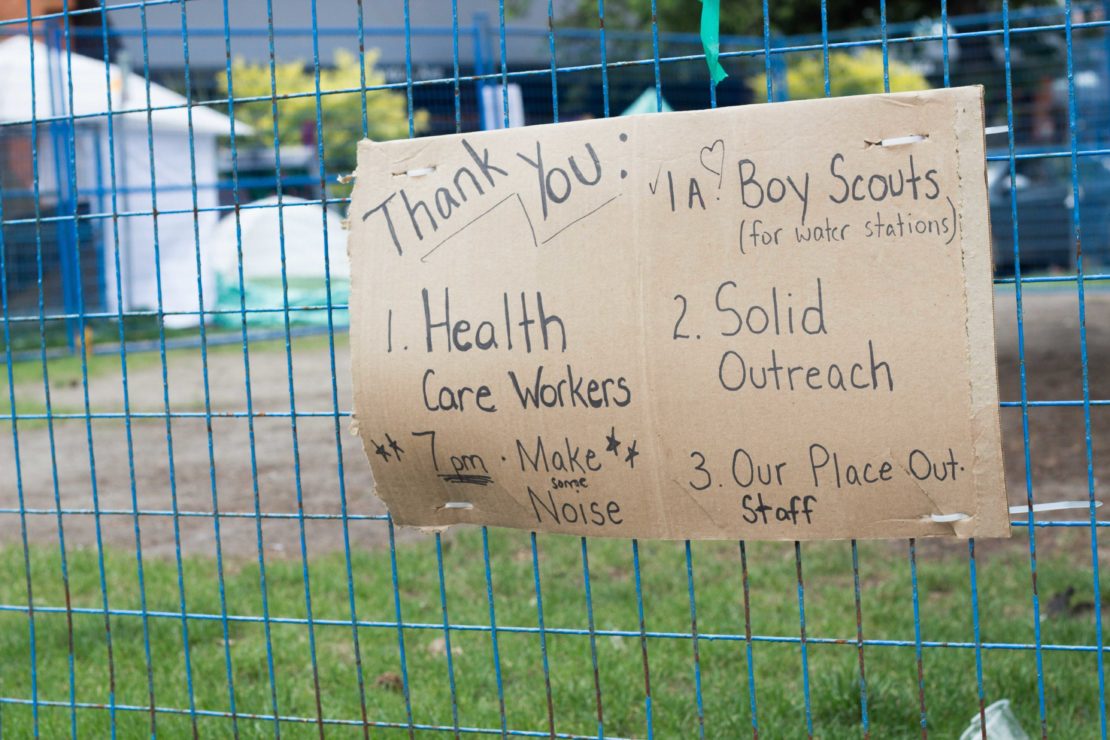 Thank You:
1. Health
Care Workers
** 7pm · Make **
some
Noise
✓1A. ♡ Boy Scouts
(for water stations)
2. Solid
Outreach
3. Our Place Out.
Staff